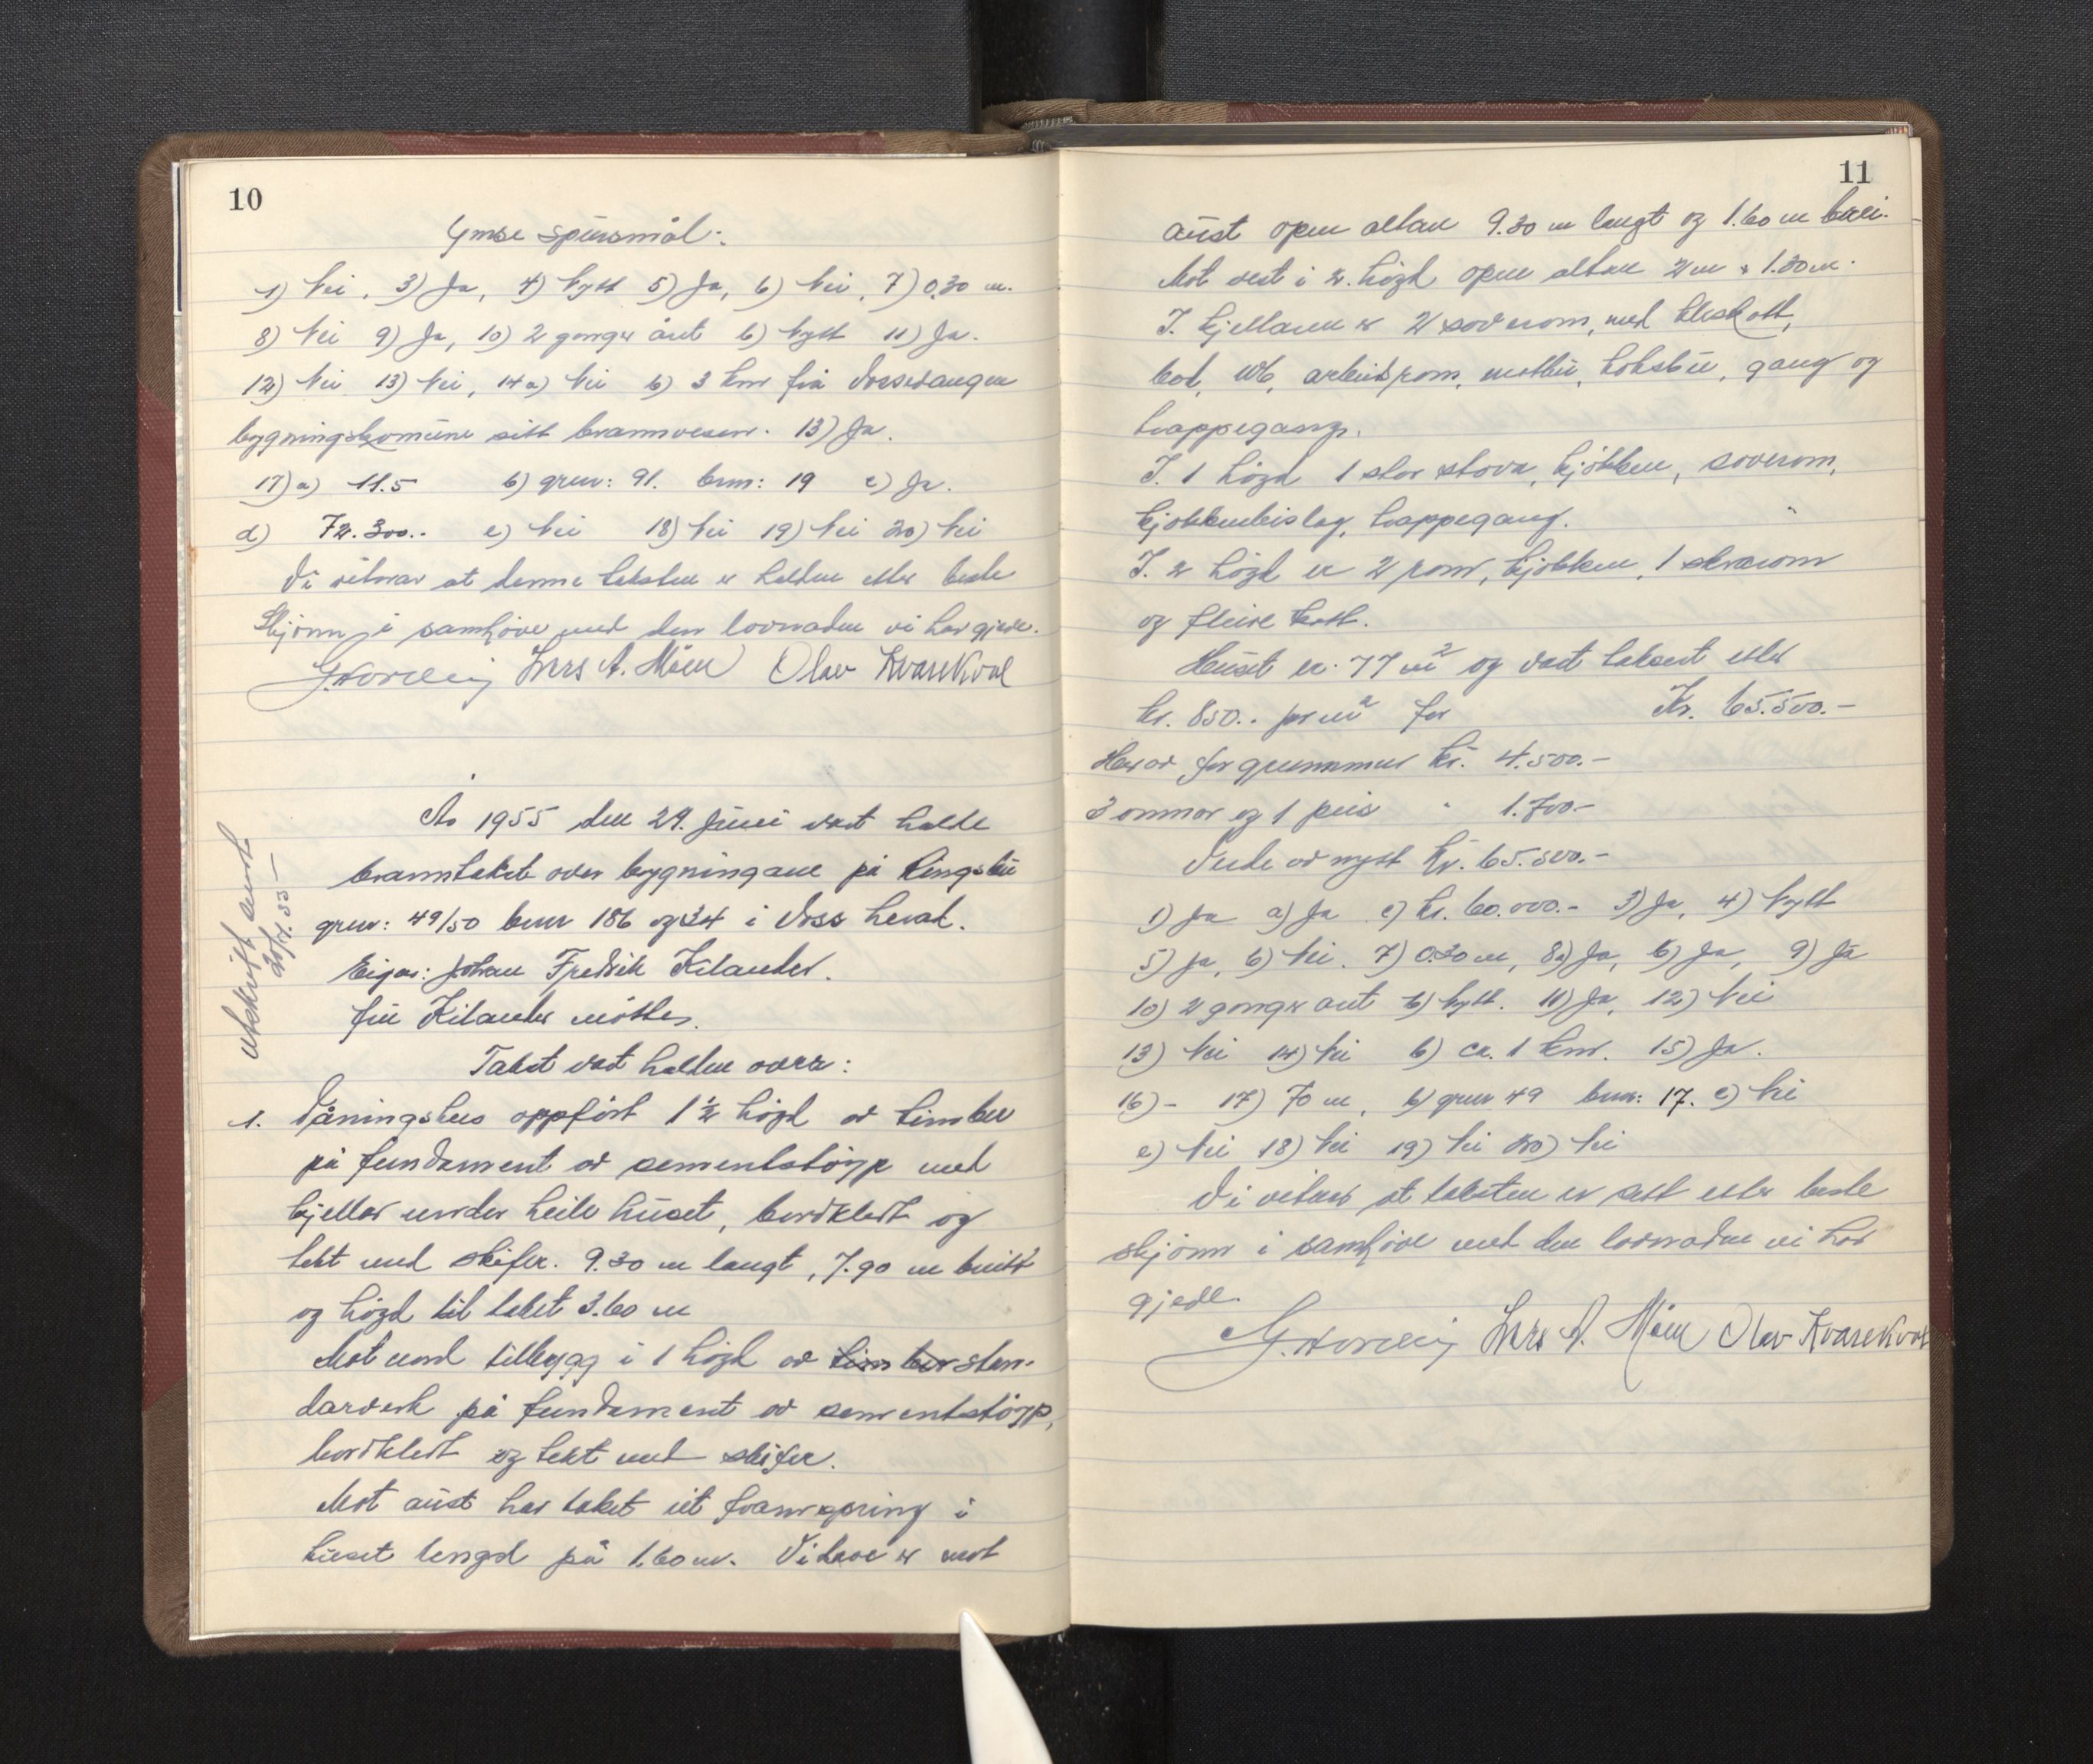 10
Ymse spursmål:
1) Nei, 3) Ja, 4) Nytt 5) Ja, 6) Nei, 7) 0.30 m.
8) Nei 9) Ja, 10) 2 gonger året b) Nytt 11) Ja.
12) Nei 13) Nei, 14 a) Nei b) 3 km frå Vossevangen
bygningskomune sitt brannvesen. 13) Ja.
17) a) 11.5 b) grnr: 91. brnr: 19 c) Ja.
d) 72.300.. e) Nei 18) Nei 19) Nei 20) Nei
Vi vitnar at denne taksten er halden etter beste
Skjønn i samhøve med den lovnaden vi har gjeve.
Lars A. Møen Olav Kvarekval
År 1955 den 29. juni vart halde
branntakst over bygningane på Tingsbu
grnr: 49/50 bnr 186 og 34 i Voss herad.
Eigar: Johan Fredrik Kilander.
fru Kilander møtte.
Takst vart halden over:
Utskrift sendt
20/7.55 —
1. Våningshus oppført 1 ½ høgd av timber
på fundament av sementstøyp med
kjellar under heile huset, bordkledt og
tekt med skifer. 9.30 m langt, 7.90 m breitt
og høgd til taket 3.60 m
Mot nord tilbygg i 1 høgd av timber sten-
darverk på fundament av sementstøyp,
bordkledt og tekt med skifer.
Mot aust har taket eit framspring i
huset lengd på 1.60 m. Vidare er mot
11
aust open altan 9.30 m langt og 1.60 m brei.
Mot vest i 2. høgd open altan 2 m x 1.30 m.
I. kjellaren er 2 soverom, med kleskott,
bod, WC, arbeidsrom, matbu, koksbu, gang og
trappegang.
I. 1 høgd 1 stor stova, kjøkken, soverom,
kjøkkenbislag, trappegang.
I. 2 høgd er 2 rom, kjøkken, 1 soverom
og fleire kott.
Huset er 77 m² og vart taksert etter
kr. 850.. pr m² for Kr. 65.500.-
Herav for grunnmur kr. 4.500.-
3 omnar og 1 peis " 1.700.-
Verde av nytt Kr. 65.500.-
1) Ja a) Ja c) kr. 60.000.- 3) Ja, 4) Nytt
5) Ja, 6) Nei. 7) 0.30 m, 8a) Ja, b) Ja, 9) Ja
10) 2 gonger året b) Nytt. 11) Ja, 12) Nei
13) Nei 14) Nei b) ca. 1 km. 15) Ja.
16) - 17) 70 m, b) grnr 49 bnr: 17. c) Nei
e) Nei 18) Nei 19) Nei 20) Nei
Vi vitnar at taksten er sett etter beste
skjønn i samhøve med den lovnaden vi har
gjeve.
Lars A. Møen Olav Kvarekval